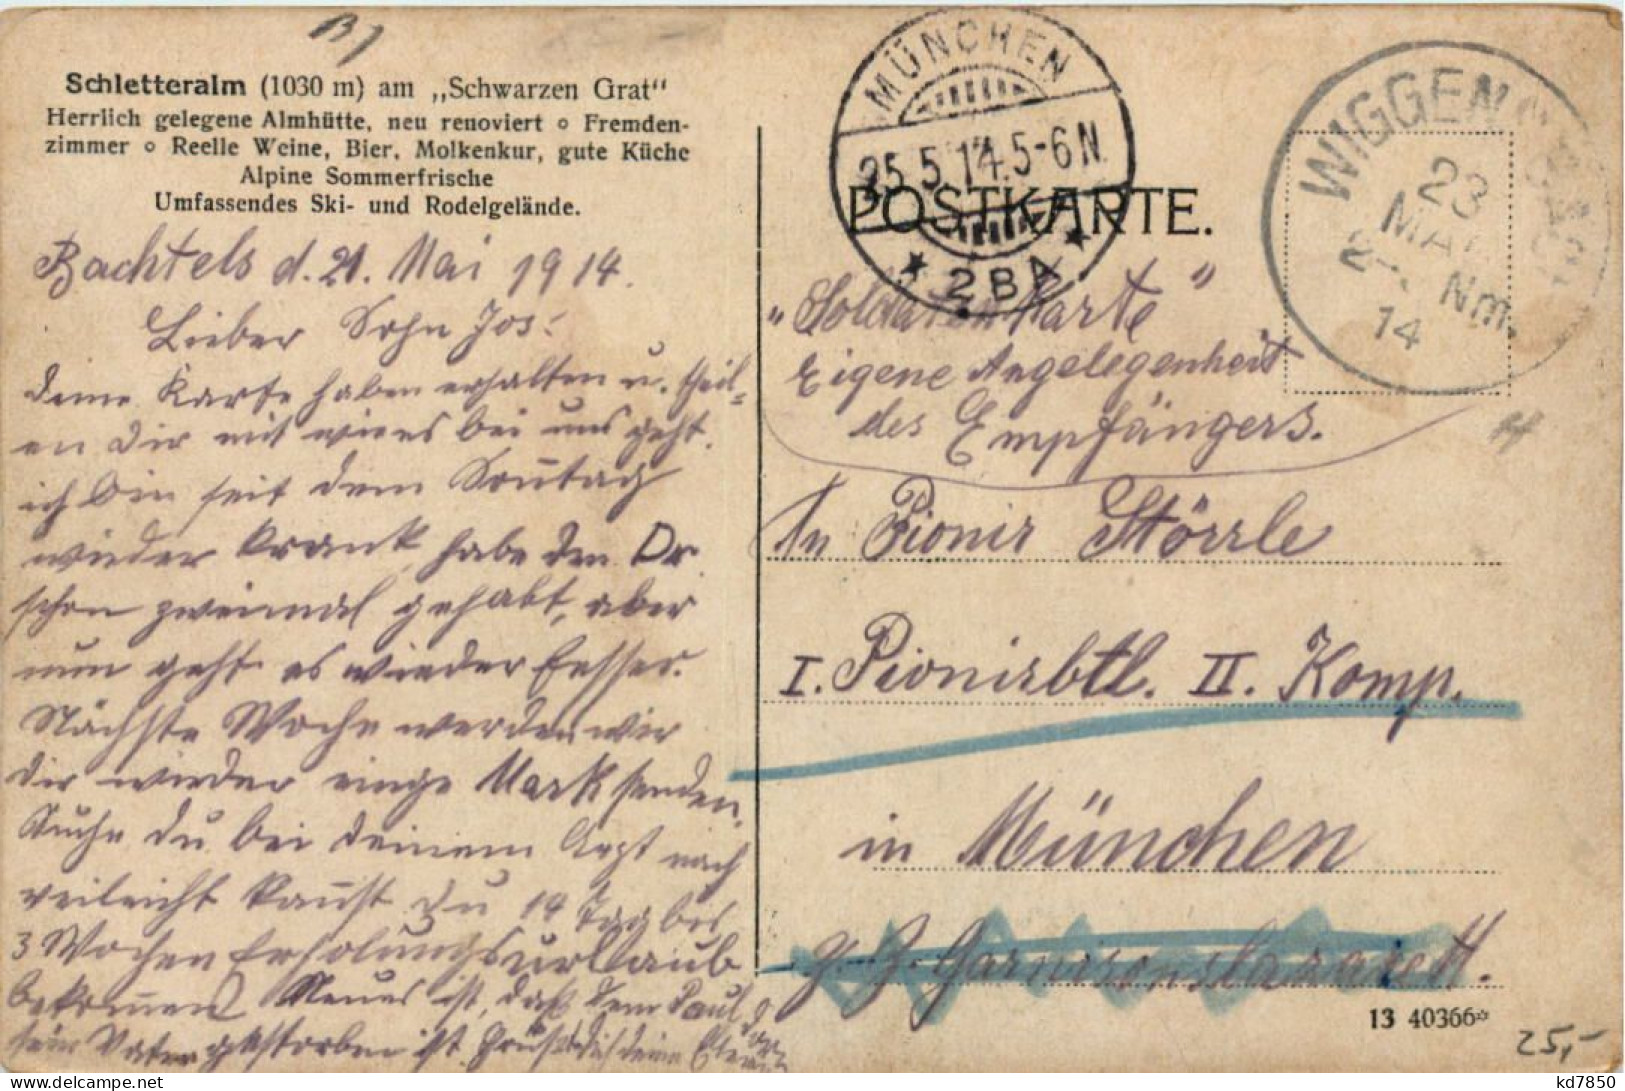 Schletteralm (1030 m) am „Schwarzen Grat“
Herrlich gelegene Almhütte, neu renoviert o Fremden-
zimmer o Reelle Weine, Bier, Molkenkur, gute Küche
Alpine Sommerfrische
Umfassendes Ski- und Rodelgelände.
Bachtels d. 21. Mai 1914.
Lieber Sohn Jos:
deine Karte haben erhalten u. theil-
en Dir mit wie es bei uns geht.
ich bin seit dem Sonntag
wieder krank, habe den Dr
schon zweimal gehabt, aber
nun geht es wieder besser.
Nächste Woche werden wir
dir wieder einige Mark senden.
Suche du bei deinem Arzt nach
vieleicht kannst Du 14 Tag bis
3 Wochen Erholungsurlaub
bekommen. Neues ist, daß dem Paul
sein Vater gestorben ist. Grüßt dich deine Eltern
MÜNCHEN
25.5.14.5-6N.
* 2BA *
POSTKARTE.
WIGGEN
23
MAI
2- Nm.
14
"Soldatenkarte"
Eigene Angelegenheit
des Empfängers.
An Pionir Störrle
I. Pionirbtl. II. Komp.
in München
z. Z. Garnisonslazarett.
13 40366*
25,-
kd7850